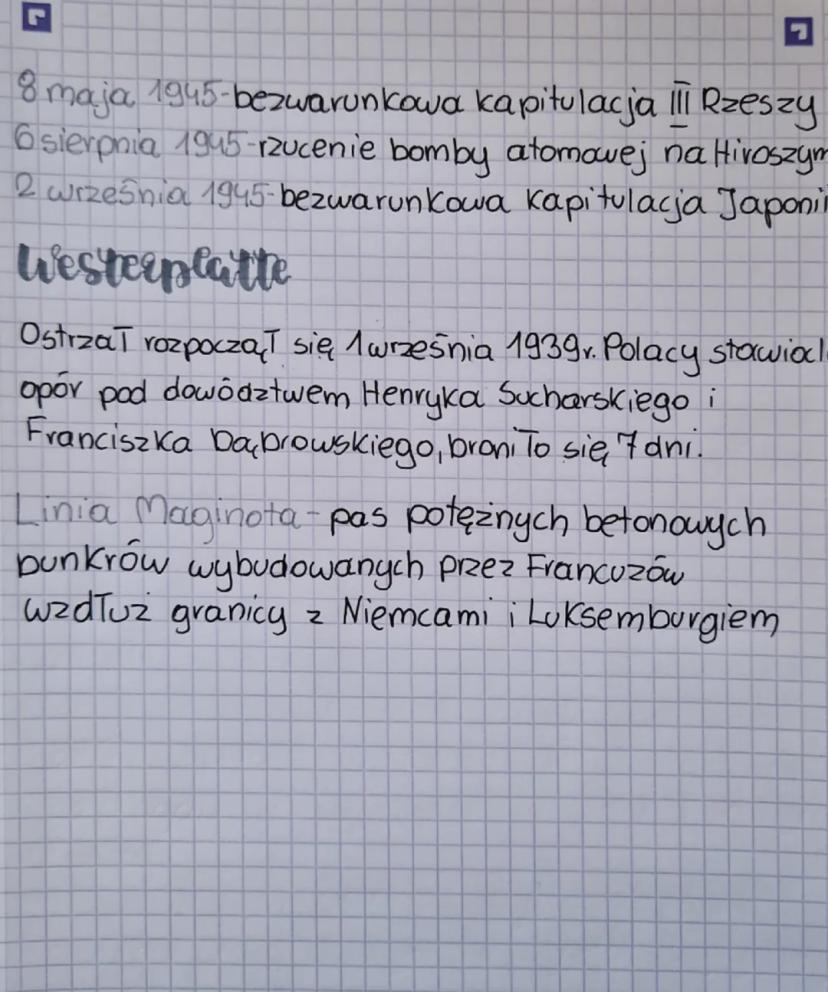 8 maja 1945-bezwarunkowa kapitulacja III Rzeszy
6 sierpnia 1945-rzucenie bomby atomowej na Hiroszym
2 września 1945-bezwarunkowa kapitulacja Japonii
Westerplatte
Ostrzał rozpoczął się 1 września 1939r. Polacy stawial
opór pod dowództwem Henryka Sucharskiego i
Franciszka Dąbrowskiego, broniło się 7 dni.
Linia Maginota - pas potężnych betonowych
bunkrów wybudowanych przez Francuzów
wzdłuż granicy z Niemcami i Luksemburgiem